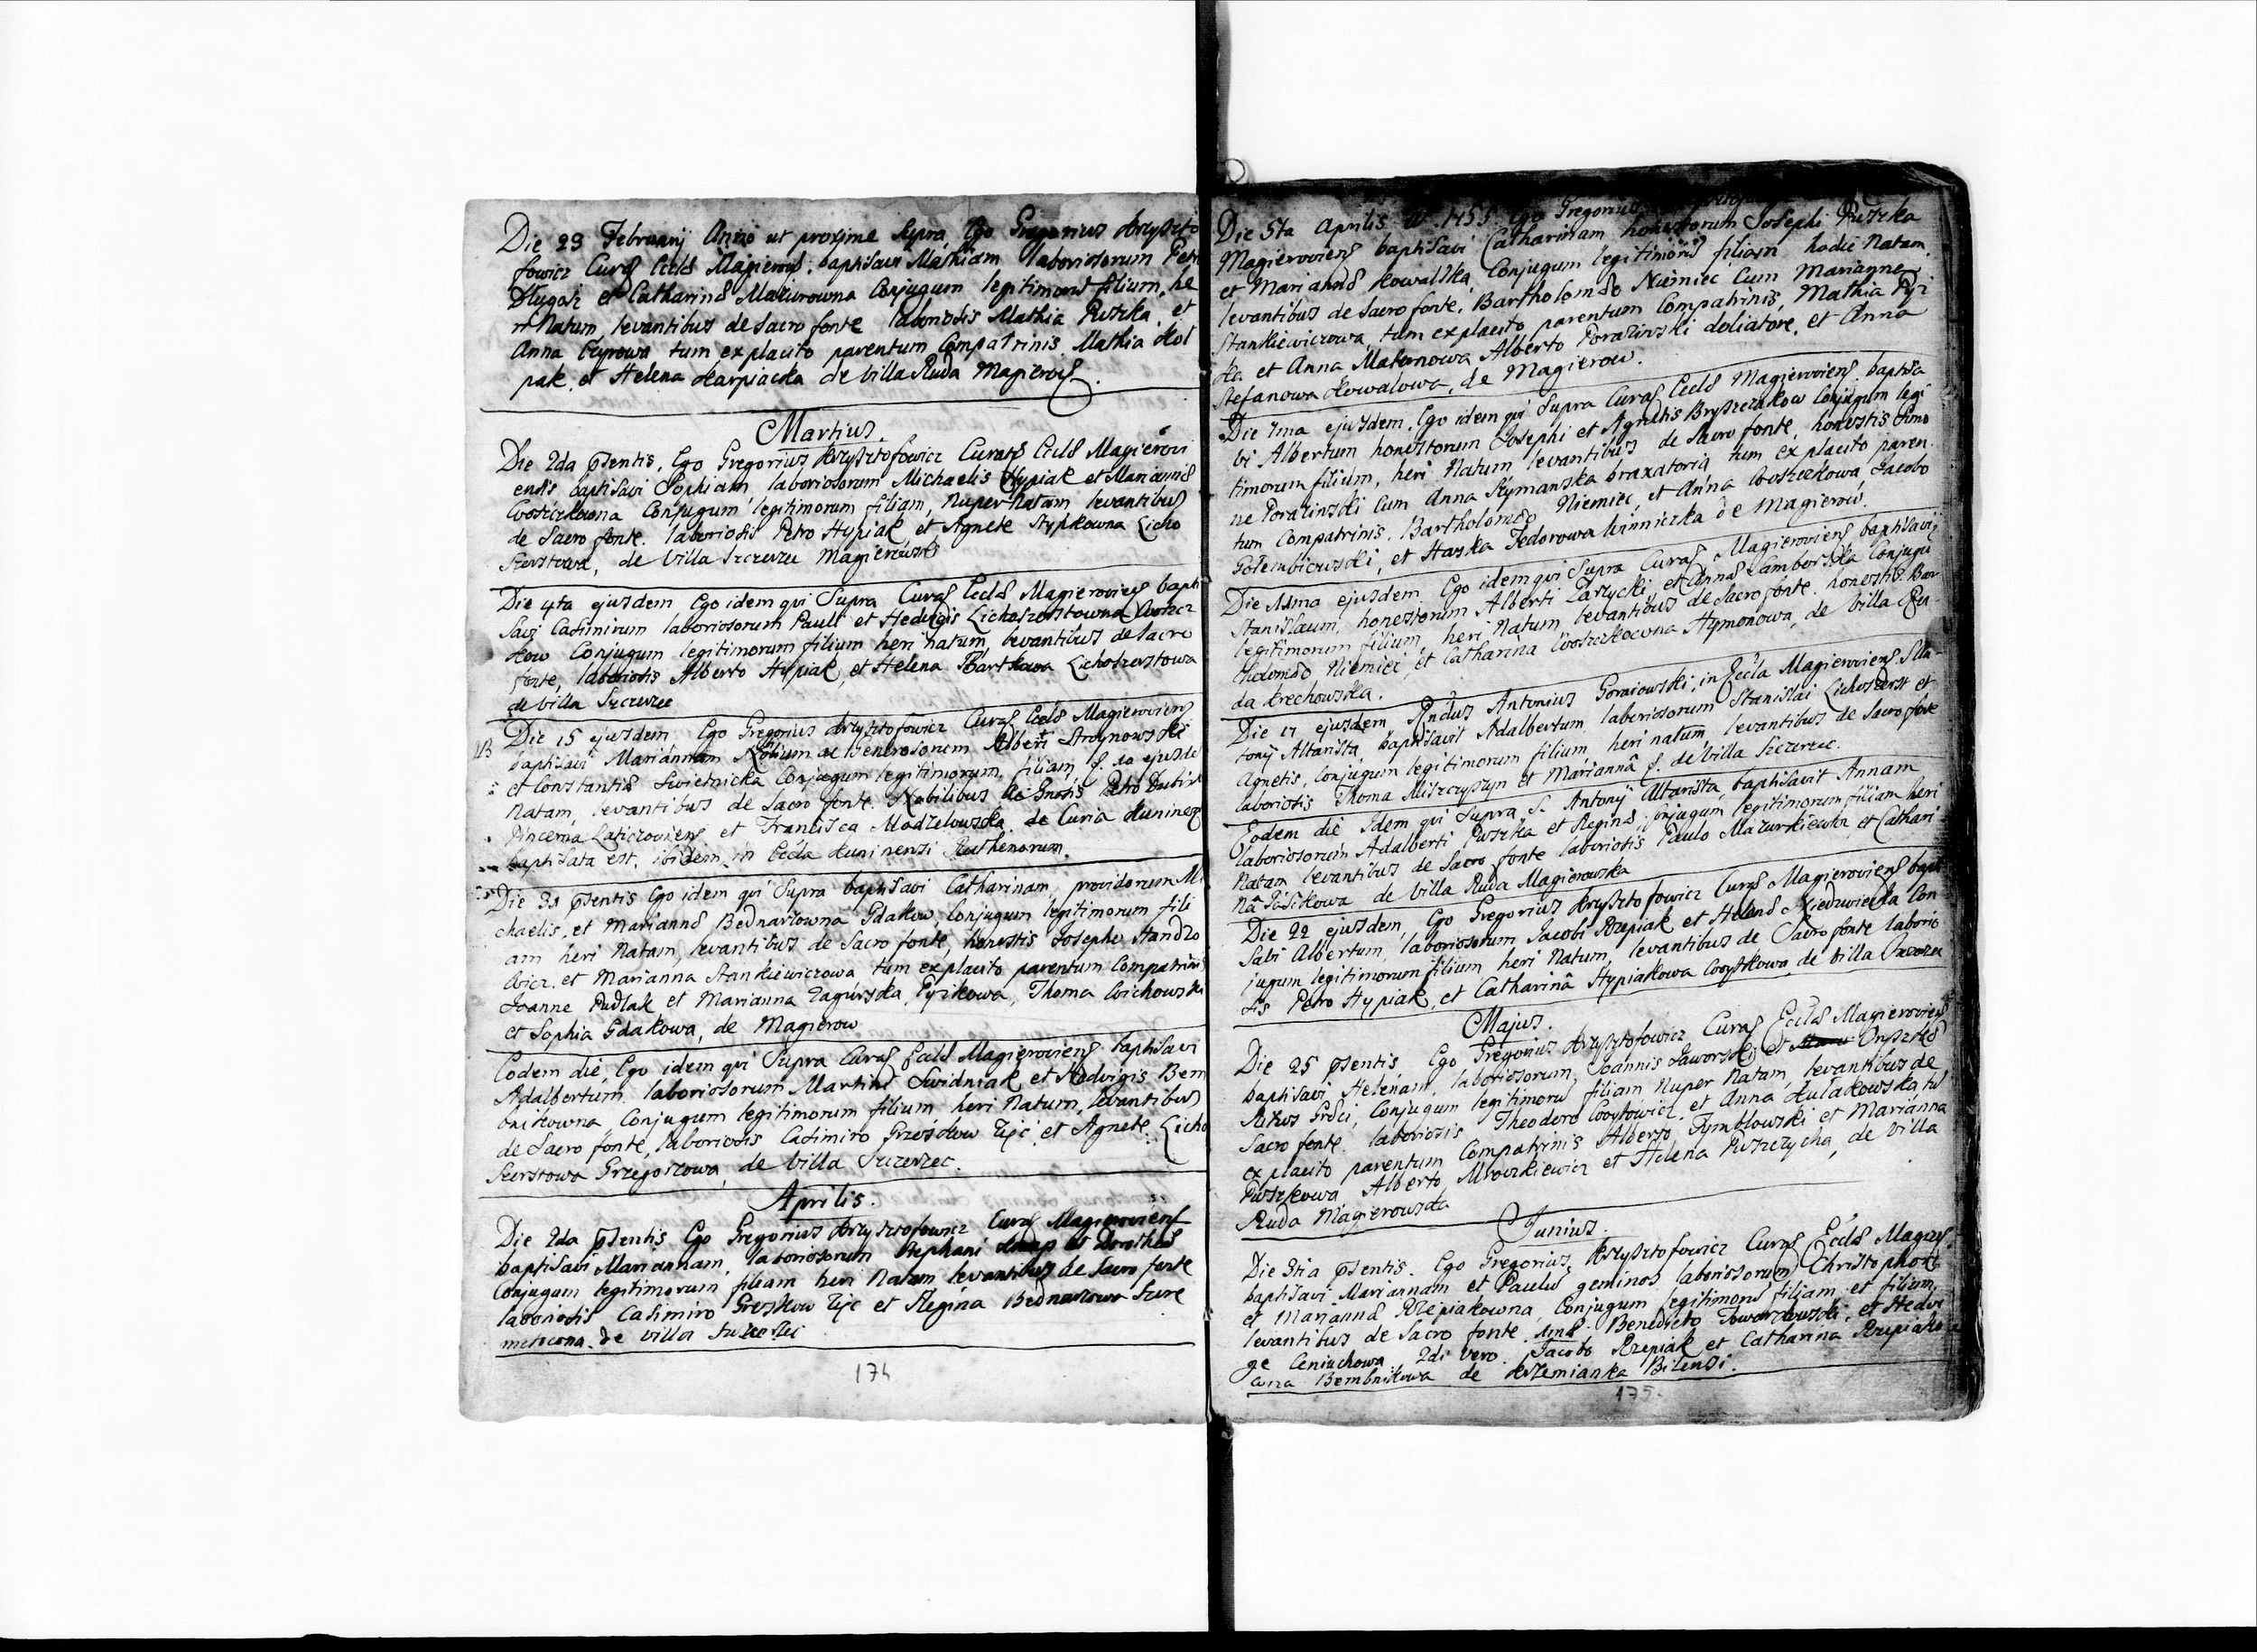 Die 23 Februarij Anno ut proxime Supra, Ego Gregorius Krzyszto
fowicz Curas Eccls Magierows. baptisavi Mathiam laboriosorum Petri
Długosz et Catharinæ Mazurowna Conjugum legitimorum filium, he
ri Natum, levantibus de Sacro fonte laboriosis Mathia Puszka, et
Anna tum ex placito parentum Compatrinis Mathia Kol
pak, et Helena Karpiacka de Villa Ruda Magierows.
Martius.
Die 2da psentis, Ego Gregorius Krzysztofowicz Curats Eccls Magierovi
ensis baptisavi Sophiam, laboriosorum Michaelis Hypiak et Mariannæ
Woszczkowna Conjugum legitimorum filiam, Nuper Natam levantibus
de Sacro fonte. laboriosis Petro Hypiak, et Agnete Hypkowna Licho
Szerstowa, de Villa Szczerzec Magierowski
Die 4ta ejusdem Ego idem qui Supra Curas Eccls Magierowiens bapti
Savi Casimirum laboriosorum Pauli et Hedvigis Lichoszerstowna Woszcz
kow Conjugum legitimorum filium heri natum, levantibus de Sacro
fonte, laboriosis Alberto Hypiak, et Helena Bartkowa Lichoszerstowa
de Villa Szczerzec
Die 15 ejusdem Ego Gregorius Krzysztofowicz Curas Eccls Magieroviens
baptisavi Mariannam Nobilium ac Generosorum Alberti Stroynowski
et Constantiæ Swietnicka Conjugum legitimorum, filiam, f. 10 ejusde
Natam, levantibus de Sacro fonte. Nobilibus ac Gnosis Petro
Pincerna Laticzoviens et Francisca Modzelowska. de Curia Kuninez
baptisata est, ibidem in Eccla Kuninensi Ruthenorum.
Die 31 psentis Ego idem qui Supra baptisavi Catharinam, providorum Mi
chaelis, et Mariannæ Bednarzowna Gdakow, Conjugum legitimorum fili
am heri Natam, levantibus de Sacro fonte, honestis Josepho Handzo
wicz et Marianna Stankiewiczowa, tum ex placito parentum Compatrinis
Joanne Pudlak et Marianna Zagurska, Pyzikowa, Thoma Wichowski
et Sophia Gdakowa, de Magierow
Eodem die, Ego idem qui Supra Curas Eccls Magieroviens baptisavi
Adalbertum, laboriosorum Martini Swidniak et Hedvigis Bem
bnikowna, Conjugum legitimorum filium heri Natum, levantibus
de Sacro fonte, laboriosis Casimiro Grześkow Zięć, et Agnete Licho
Szerstowa Grzegoszowa, de Villa Szczerzec.
Aprilis.
Die 2da psentis Ego Gregorius Krzysztofowicz Curas Magieroviens
baptisavi Mariannam, laboriosorum Stephani et Dorotheæ
Conjugum legitimorum filiam heri Natam levantibus de Sacro fonte
laboriosis Casimiro Grzeskow Zięc et Regina Bednarzowa
de Villa Szczerzec
174
Die 5ta Aprilis A. 1755 Ego Gregorius
Magieroviens baptisavi Catharinam honestorum Josephi Puszka
et Mariannæ Kowalska, Conjugum legitimors filiam hodie Natam
levantibus de Sacro fonte, Bartholomæo Niemiec Cum Marianne
Stankiewiczowa, tum ex placito parentum Compatrinis, Mathia Pyzi
ka et Anna Alberto Porazinski doliatore, et Anna
Stefanowa Kowalowa, de Magierow.
Die 7ma ejusdem, Ego idem qui Supra Curas Eccls Magieroviens baptisa
vi Albertum honestorum Josephi et Agnetis Bryszczakow Conjugum legi
timorum filium, heri Natum levantibus de Sacro fonte, honestis Simo
ne Porazinski Cum Anna Szymanska braxatoria, tum ex placito paren
tum Compatrinis, Bartholomæo Niemiec, et Anna Woszczkowa, Jacobo
Gołembiowski, et Haska Fedorowa Winniczka de Magierow.
Die 11ma ejusdem Ego idem qui Supra Curas Magieroviens baptisavi
Stanislaum, honestorum Alberti Zarzycki, et Annæ Samborska Conjugu
legitimorum filium, heri Natum levantibus de Sacro fonte. honestis Bar
tholomæo Niemiec, et Catharina Woszczkowna Hymonowa, de Villa Ru
da Krechowska.
Die 17 ejusdem Rndus Antonius Gorniowski, in Eccla Magieroviens S. An
tonij Altarista, baptisavit Adalbertum laboriosorum Stanislai Lichoszerst et
Agnetis, Conjugum legitimorum filium heri natum levantibus de Sacro fonte
laboriosis Thoma Miszczyszyn et Marianna f. de Villa Szczerzec.
Eodem die Idem qui Supra S. Antonij Altarista, baptisavit Annam
laboriosorum Adalberti Puszka et Reginæ Conjugum legitimorum filiam heri
Natam levantibus de Sacro fonte laboriosis Paulo Mazurkiewicz et Cathari
na Josikowa de Villa Ruda Magierowska
Die 22 ejusdem, Ego Gregorius Krzysztofowicz Curas Magieroviens bapti
Savi Albertum, laboriosorum Jacobi Rzepiak et Helenæ Niedzwiecka Con
jugum legitimorum filium heri Natum, levantibus de Sacro fonte laborio
sis Petro Hypiak, et Catharina Hypiakowa Woytkowa, de Villa Szczerzec
Majus.
Die 25 psentis, Ego Gregorius Krzysztofowicz Curas Eccls Magieroviens
baptisavi Helenam, laboriosorum, Joannis Jaworski et Oryszkæ
Ritus Græci, Conjugum legitimors filiam Nuper Natam, levantibus de
Sacro fonte. laboriosis Theodoro Woytowicz, et Anna Kulakowska, tu
ex placito parentum Compatrinis Alberto Tymblowski et Marianna
Puszkowa, Alberto Mroczkiewicz et Helena Puszczycha, de Villa
Ruda Magierowska
Junius.
Die 3tia psentis. Ego Gregorius Krzysztofowicz Curas Eccls Magiers.
baptisavi Mariannam et Paulu geminos laboriosorum Christophori
et Mariannæ Rzepiakowna, Conjugum legitimors filiam et filium,
levantibus de Sacro fonte 1mæ. Benedicto Towarzowski, et Hedvi
ge Ceniuchowa 2di vero. Jacobo Rzepiak et Catharina Rzepiako
wna Bembnikowa de Krzemianka Bilensi.
175.